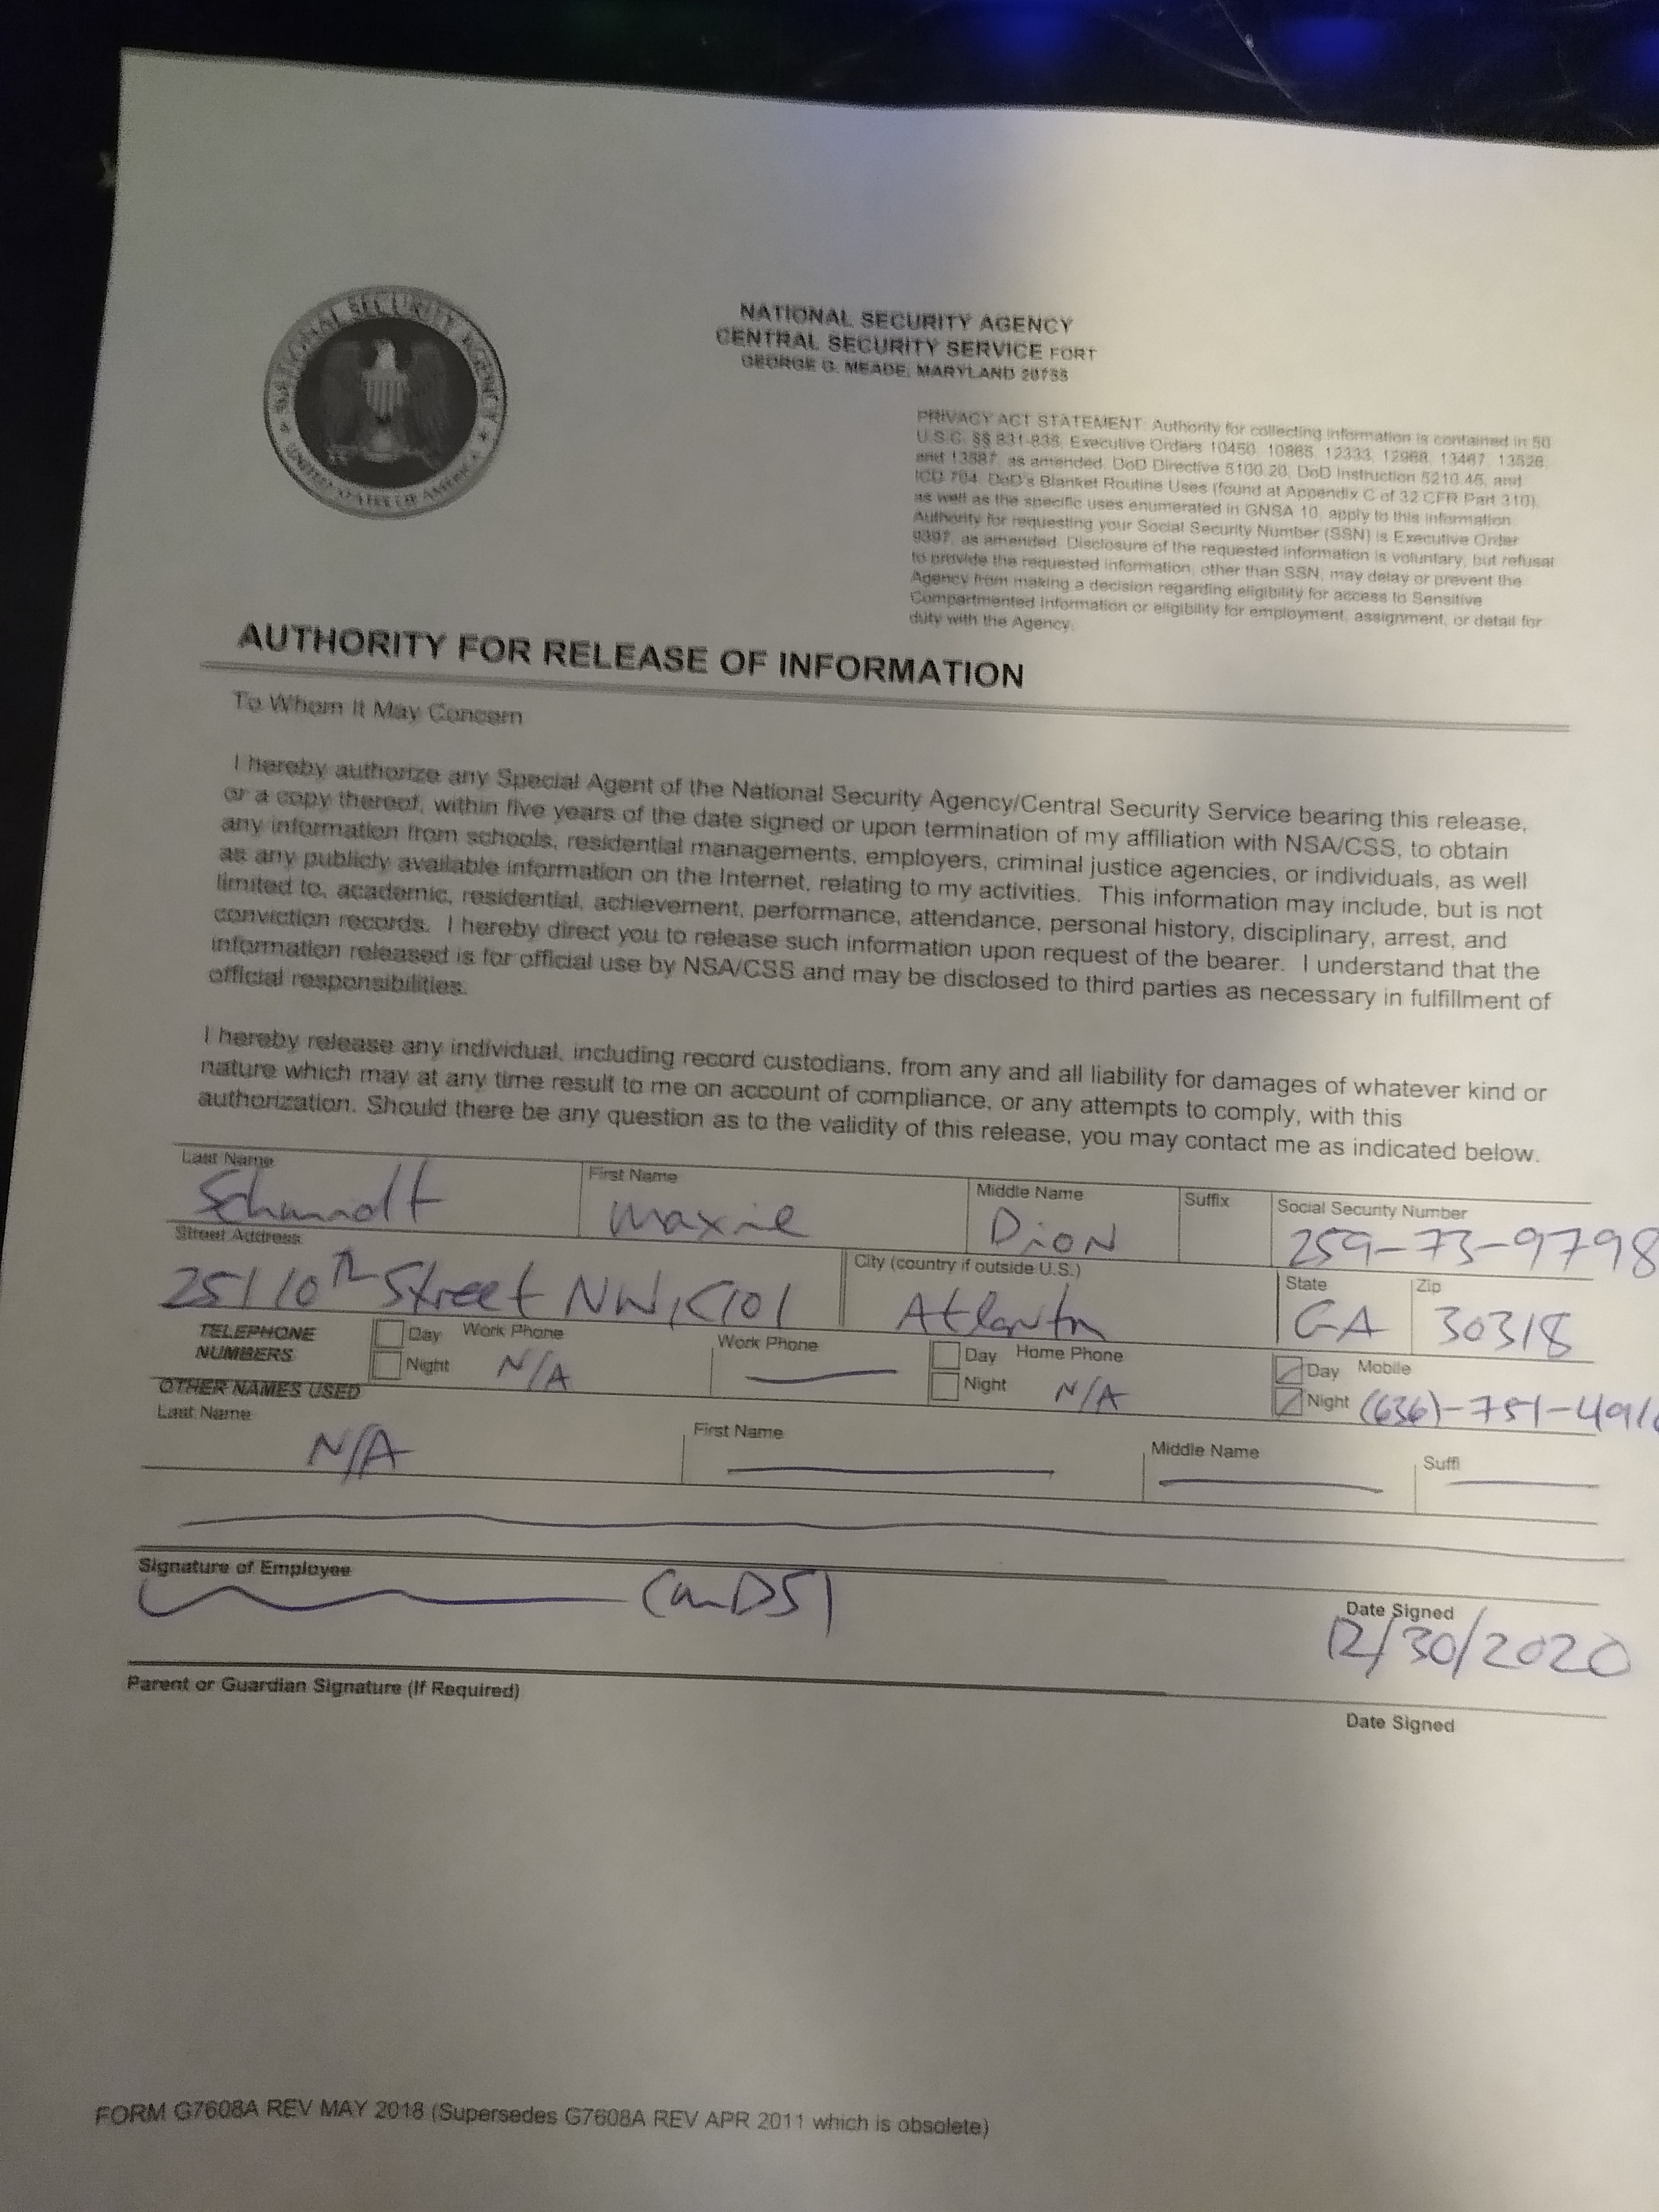 NATIONAL SECURITY AGENCY
UNITED STATES OF AMERICA
NATIONAL SECURITY AGENCY
CENTRAL SECURITY SERVICE FORT
GEORGE G. MEADE, MARYLAND 20755
PRIVACY ACT STATEMENT: Authority for collecting information is contained in 50
U.S.C. §§ 831-835, Executive Orders 10450, 10865, 12333, 12968, 13467, 13526,
and 13587, as amended, DoD Directive 5100.20, DoD Instruction 5210.45, and
ICD 704. DoD's Blanket Routine Uses (found at Appendix C of 32 CFR Part 310),
as well as the specific uses enumerated in GNSA 10, apply to this information.
Authority for requesting your Social Security Number (SSN) is Executive Order
9397, as amended. Disclosure of the requested information is voluntary, but refusal
to provide the requested information, other than SSN, may delay or prevent the
Agency from making a decision regarding eligibility for access to Sensitive
Compartmented Information or eligibility for employment, assignment, or detail for
duty with the Agency.
AUTHORITY FOR RELEASE OF INFORMATION
To Whom It May Concern
I hereby authorize any Special Agent of the National Security Agency/Central Security Service bearing this release,
or a copy thereof, within five years of the date signed or upon termination of my affiliation with NSA/CSS, to obtain
any information from schools, residential managements, employers, criminal justice agencies, or individuals, as well
as any publicly available information on the Internet, relating to my activities. This information may include, but is not
limited to, academic, residential, achievement, performance, attendance, personal history, disciplinary, arrest, and
conviction records. I hereby direct you to release such information upon request of the bearer. I understand that the
information released is for official use by NSA/CSS and may be disclosed to third parties as necessary in fulfillment of
official responsibilities.
I hereby release any individual, including record custodians, from any and all liability for damages of whatever kind or
nature which may at any time result to me on account of compliance, or any attempts to comply, with this
authorization. Should there be any question as to the validity of this release, you may contact me as indicated below.
Last Name First Name Middle Name Suffix Social Security Number
Schmidt Maxie Dion 259-73-9798
Street Address City (country if outside U.S.) State Zip
251 10th Street NW, C101 Atlanta GA 30318
TELEPHONE NUMBERS Day Night Work Phone N/A Work Phone Day Night Home Phone N/A Day Night Mobile (636)-751-491
OTHER NAMES USED
Last Name First Name Middle Name Suffi
N/A
Signature of Employee Date Signed
12/30/2020
Parent or Guardian Signature (If Required) Date Signed
FORM G7608A REV MAY 2018 (Supersedes G7608A REV APR 2011 which is obsolete)